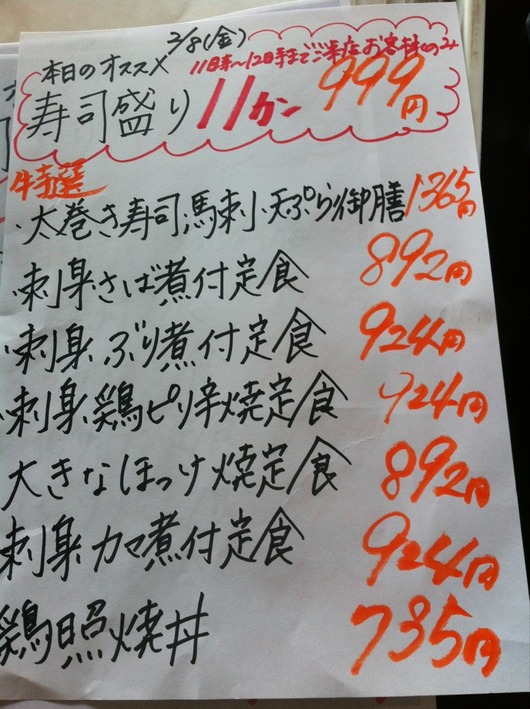 2/8(金)
本日のオススメ 11時〜12時までご来店お客様のみ
寿司盛り 11カン 999円
特選
・太巻き寿司・馬刺・天ぷら御膳 1365円
・刺身、さば煮付定食 892円
・刺身、ぶり煮付定食 924円
・刺身、鶏ピリ辛焼定食 924円
大きなほっけ焼定食 892円
刺身、カマ煮付定食 924円
鶏照焼丼 735円